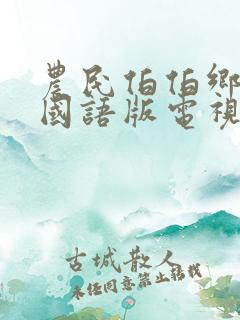 農民伯伯鄉
國語版電視
古城散人
未经同意禁止转载